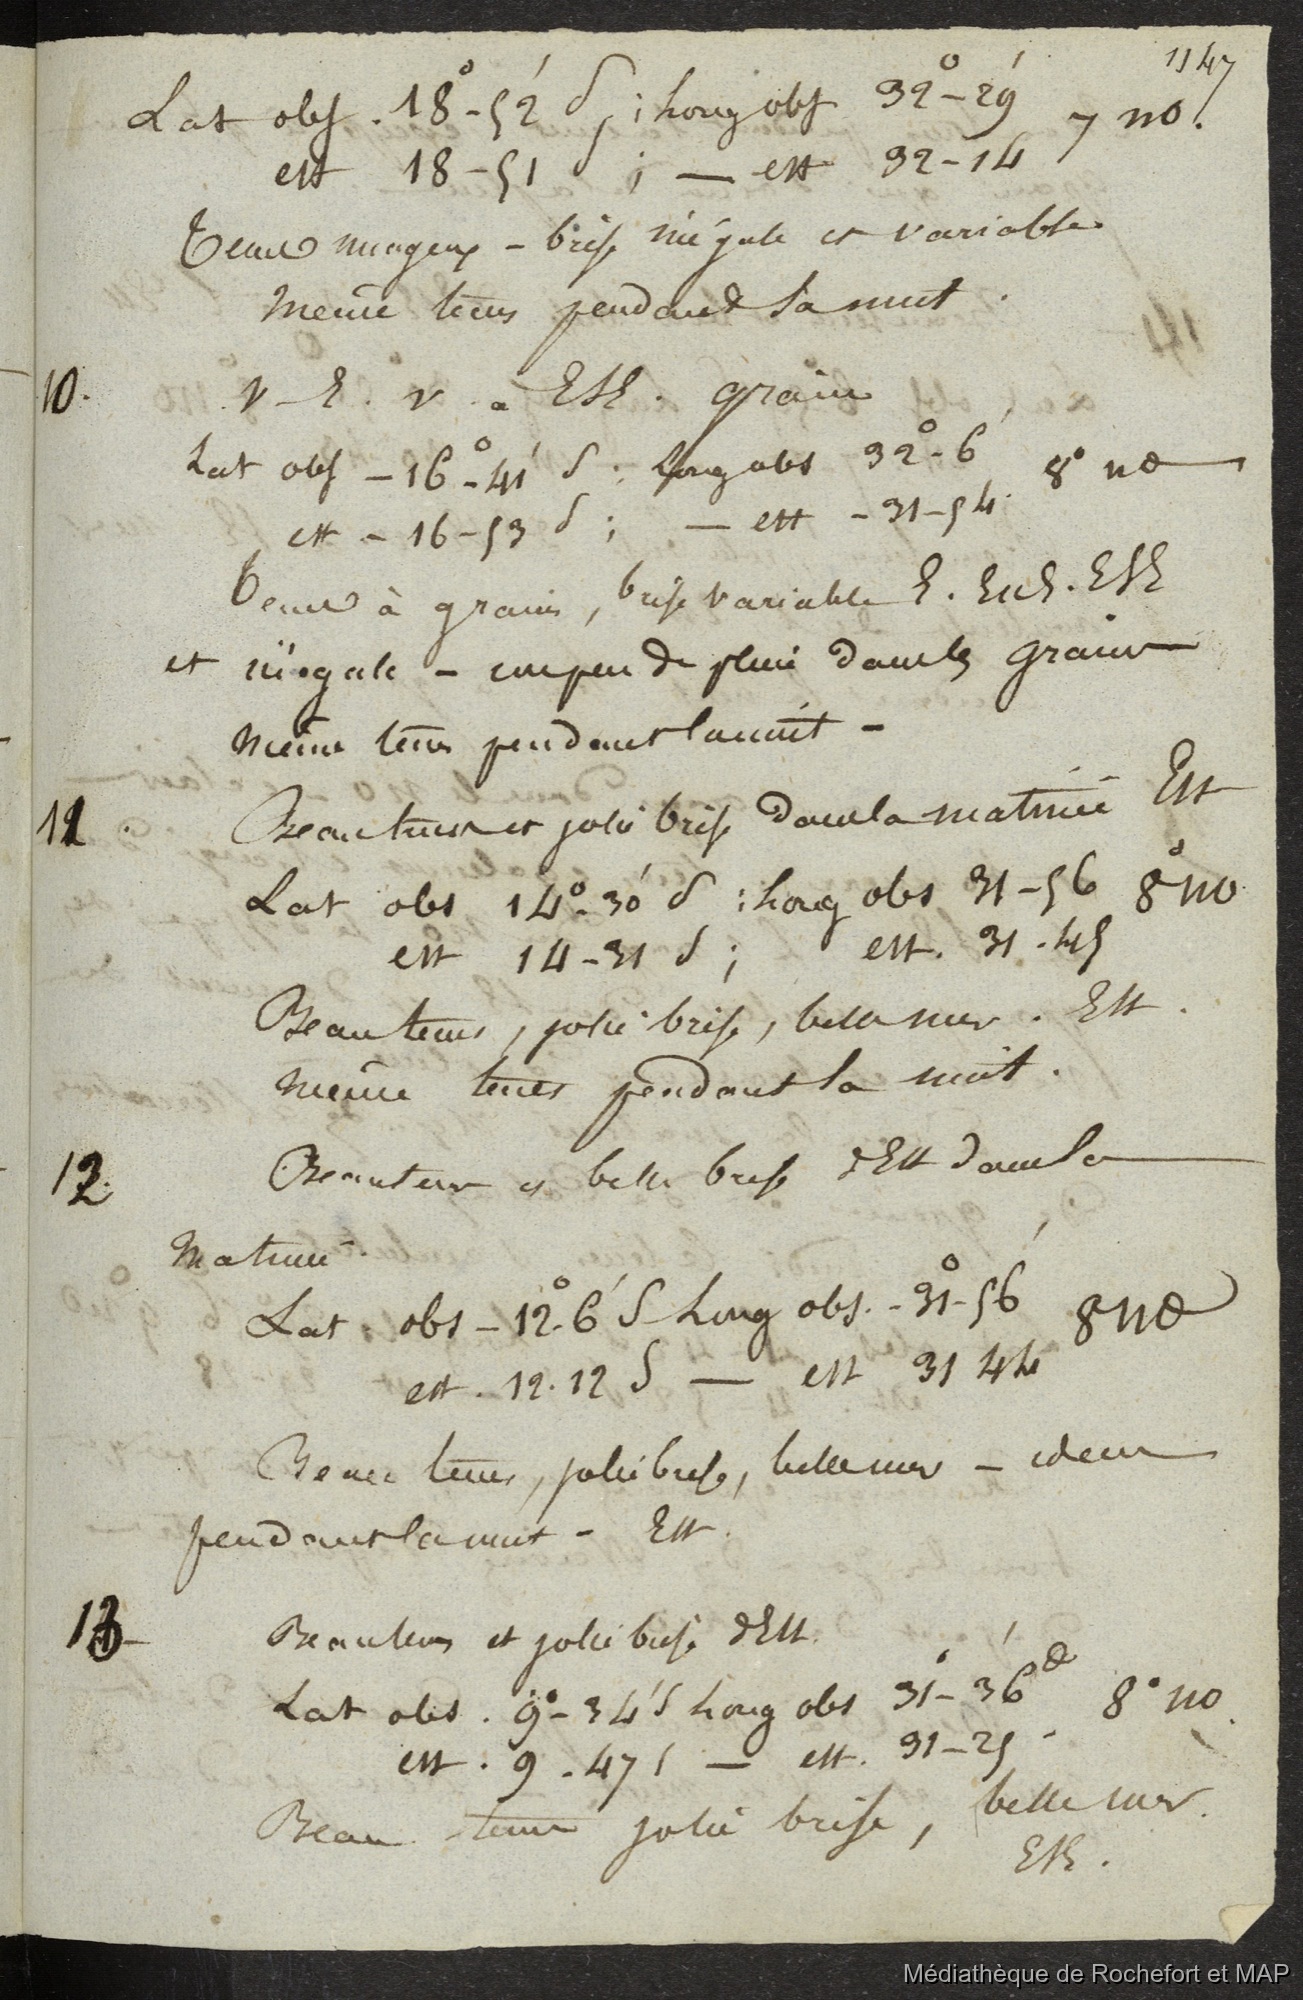 1147
Lat obs. 18°-52' S ; Long obs 32°-29' 7 no.
est 18-51 S ; — est 32-14
Tems nuageux - brise inégale et variable
même tems pendant la nuit.
10. V - E. V. a ESE. grains
Lat obs - 16°-41' S ; Long obs 32°-6' 8° no
est - 16-53 S ; — est - 31-54.
Tems à grains, brise variable E. ENE. ESE
et inégale - un peu de pluie dans les grains
même tems pendant la nuit -
11. Beau tems et jolie brise dans la matinée Est
Lat obs 14°-30' S ; Long obs 31-56 8° no
est 14-31 S ; est. 31-45
Beau tems, jolie brise, belle mer. Est.
même tems pendant la nuit.
12. Beau tems et belle brise d'Est dans la
matinée.
Lat obs - 12°-6' S Long obs. - 31°-56' 8 no
est. 12.12 S — est 31 44
Beau tems, jolie brise, belle mer - idem
pendant la nuit - Est.
13 - Beau tems et jolie brise d'Est.
Lat obs. 9°-34' S Long obs 31°-36' 8° no.
est. 9-47 S — est. 31-25 -
Beau tems jolie brise, belle mer.
ESE.
Médiathèque de Rochefort et MAP